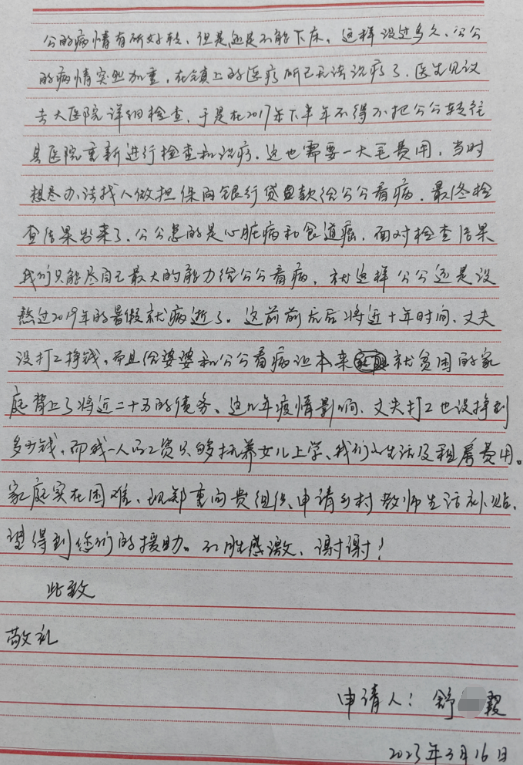 公的病情有所好转，但是还是不能下床。这样没过多久，公公
的病情突然加重，在镇上的医疗所已无法治疗了，医生见议
去大医院详细检查，于是在2017年下半年不得不把公公转往
县医院重新进行检查和治疗，这也需要一大笔费用，当时
想尽办法找人做担保向银行贷款给公公看病，最终检
查结果出来了，公公患的是心脏病和食道癌，面对检查结果
我们只能尽自己最大的能力给公公看病，就这样公公还是没
熬过2019年的暑假就病逝了。这前前后后将近十年时间，丈夫
没打工挣钱，而且给婆婆和公公看病让本来就贫困的家
庭背上了将近二十万的债务，这几年疫情影响，丈夫打工也没挣到
多少钱，而我一人的工资只够抚养女儿上学、我们的生活及租房费用。
家庭实在困难，现郑重向贵组织申请乡村教师生活补贴，
望得到您们的援助。不胜感激，谢谢！
此致
敬礼
申请人：舒 毅
2023年3月16日